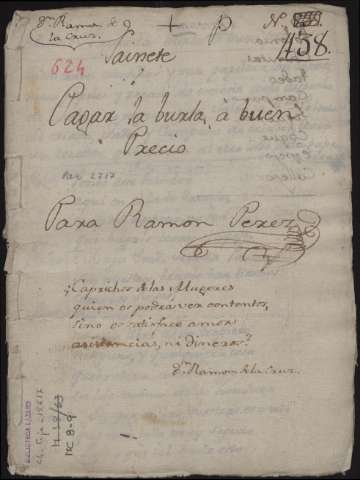 Dn. Ramon de
la Cruz.
+
N.
438.
Sainete
624
Pagar la burla, à buen
Precio
Par 2717
Para Ramon Perez
¿Caprichos de las Mugeres
quien os podrá ver contentos,
sino os satisface amor
asistencias, ni dineros?
Dn. Ramon de la Cruz.